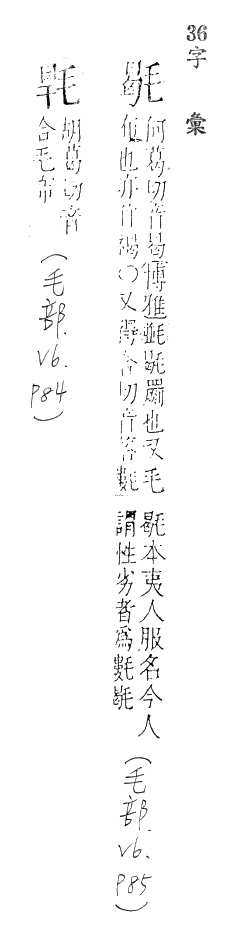 36 字彙
毼
何葛切音曷博雅㲪毼罽也又毛
布也亦作褐〇又得合切音答㲪
毼本夷人服名今人
謂性劣者為㲪毼
(毛部. V6. P85)
胡葛切音
合毛布
(毛部. V6. P84)